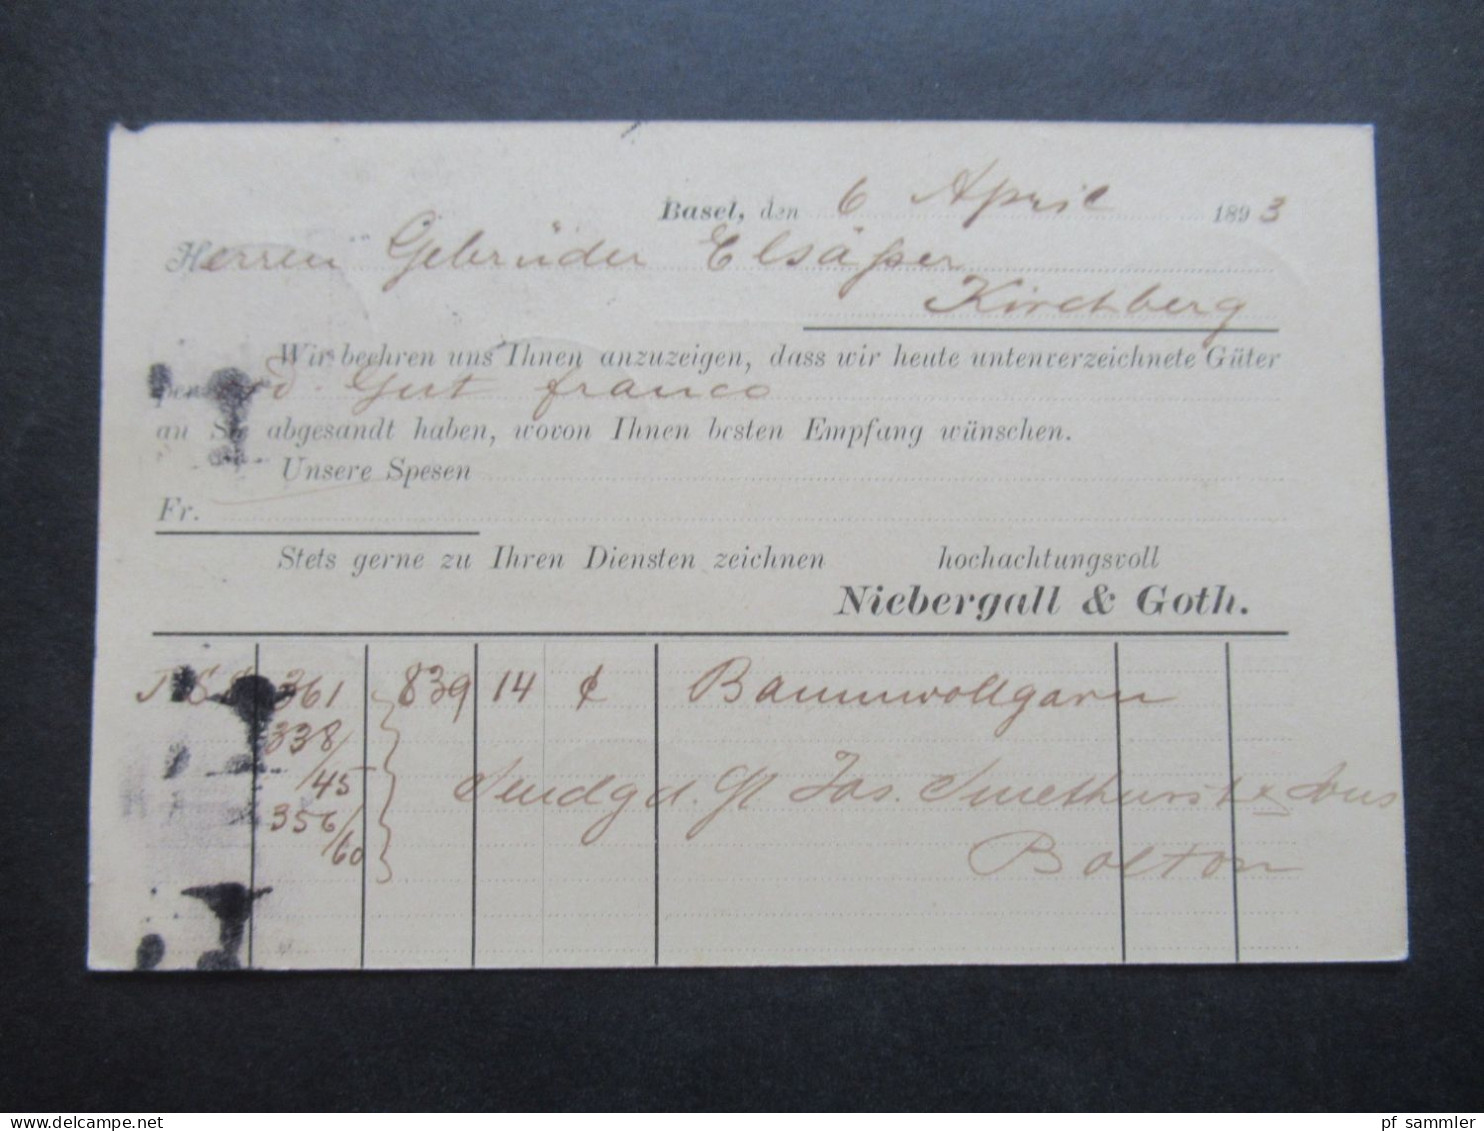 Basel, den 6 April 1893
Herren Gebrüder Elsäßer
Kirchberg
Wir beehren uns Ihnen anzuzeigen, dass wir heute untenverzeichnete Güter
per Gut franco
an Sie abgesandt haben, wovon Ihnen besten Empfang wünschen.
Unsere Spesen
Fr.
Stets gerne zu Ihren Diensten zeichnen hochachtungsvoll
Niebergall & Goth.
361 839 14 ¢ Baumwollgarn
338/
/45 Sendg d. Jas. Smethurst & Sons
356/
/60 Bolton
pf_sammler